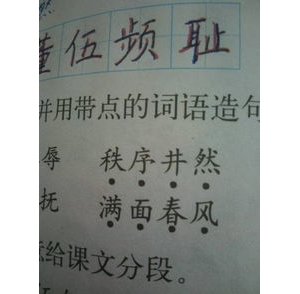 董伍频耻
并用带点的词语造句
辱 秩序井然
抚 满面春风
给课文分段。